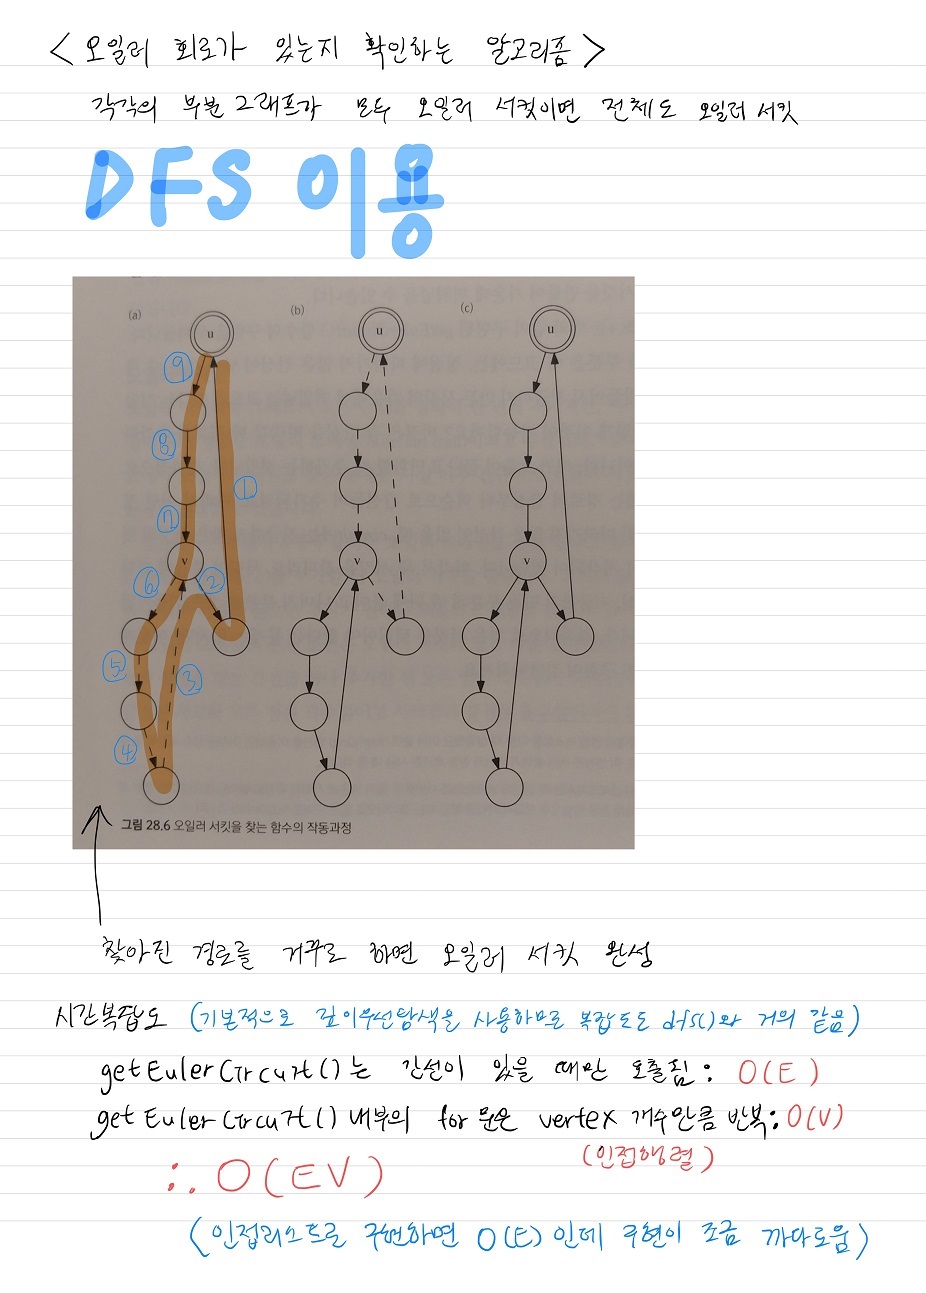 < 오일러 회로가 있는지 확인하는 알고리즘 >
각각의 부분그래프가 모두 오일러 서킷이면 전체도 오일러 서킷
DFS 이용
(a) (b) (c)
u u u
⑨
⑧
①
⑦
v v v
⑥ ②
⑤ ③
④
그림 28.6 오일러 서킷을 찾는 함수의 작동과정
찾아진 경로를 거꾸로 하면 오일러 서킷 완성
시간복잡도 (기본적으로 깊이우선탐색을 사용하므로 복잡도도 dfs()와 거의 같음)
getEulerCircuit()는 간선이 있을 때만 호출됨: O(E)
getEulerCircuit() 내부의 for 문은 vertex 개수만큼 반복: O(V)
(인접행렬)
∴ O(EV)
(인접리스트로 구현하면 O(E)인데 구현이 조금 까다로움)